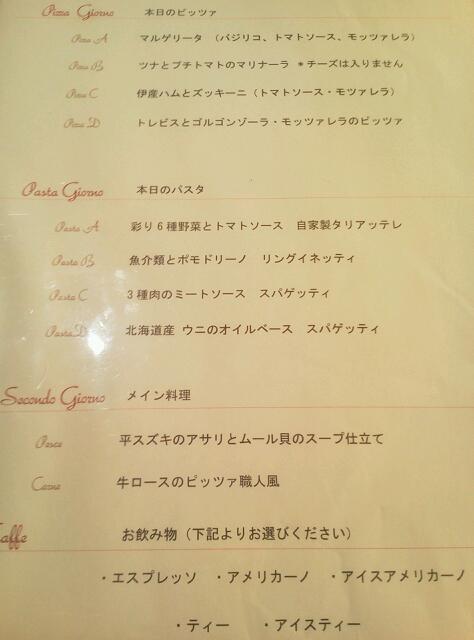 Pizza Giorno 本日のピッツァ
Pizza A マルゲリータ （バジリコ、トマトソース、モッツァレラ）
Pizza B ツナとプチトマトのマリナーラ ＊チーズは入りません
Pizza C 伊産ハムとズッキーニ（トマトソース・モツァレラ）
Pizza D トレビスとゴルゴンゾーラ・モッツァレラのピッツァ
Pasta Giorno 本日のパスタ
Pasta A 彩り６種野菜とトマトソース 自家製タリアッテレ
Pasta B 魚介類とポモドリーノ リングイネッティ
Pasta C ３種肉のミートソース スパゲッティ
Pasta D 北海道産 ウニのオイルベース スパゲッティ
Secondo Giorno メイン料理
Pesce 平スズキのアサリとムール貝のスープ仕立て
Carne 牛ロースのピッツァ職人風
Caffe お飲み物（下記よりお選びください）
・エスプレッソ ・アメリカーノ ・アイスアメリカーノ
・ティー ・アイスティー